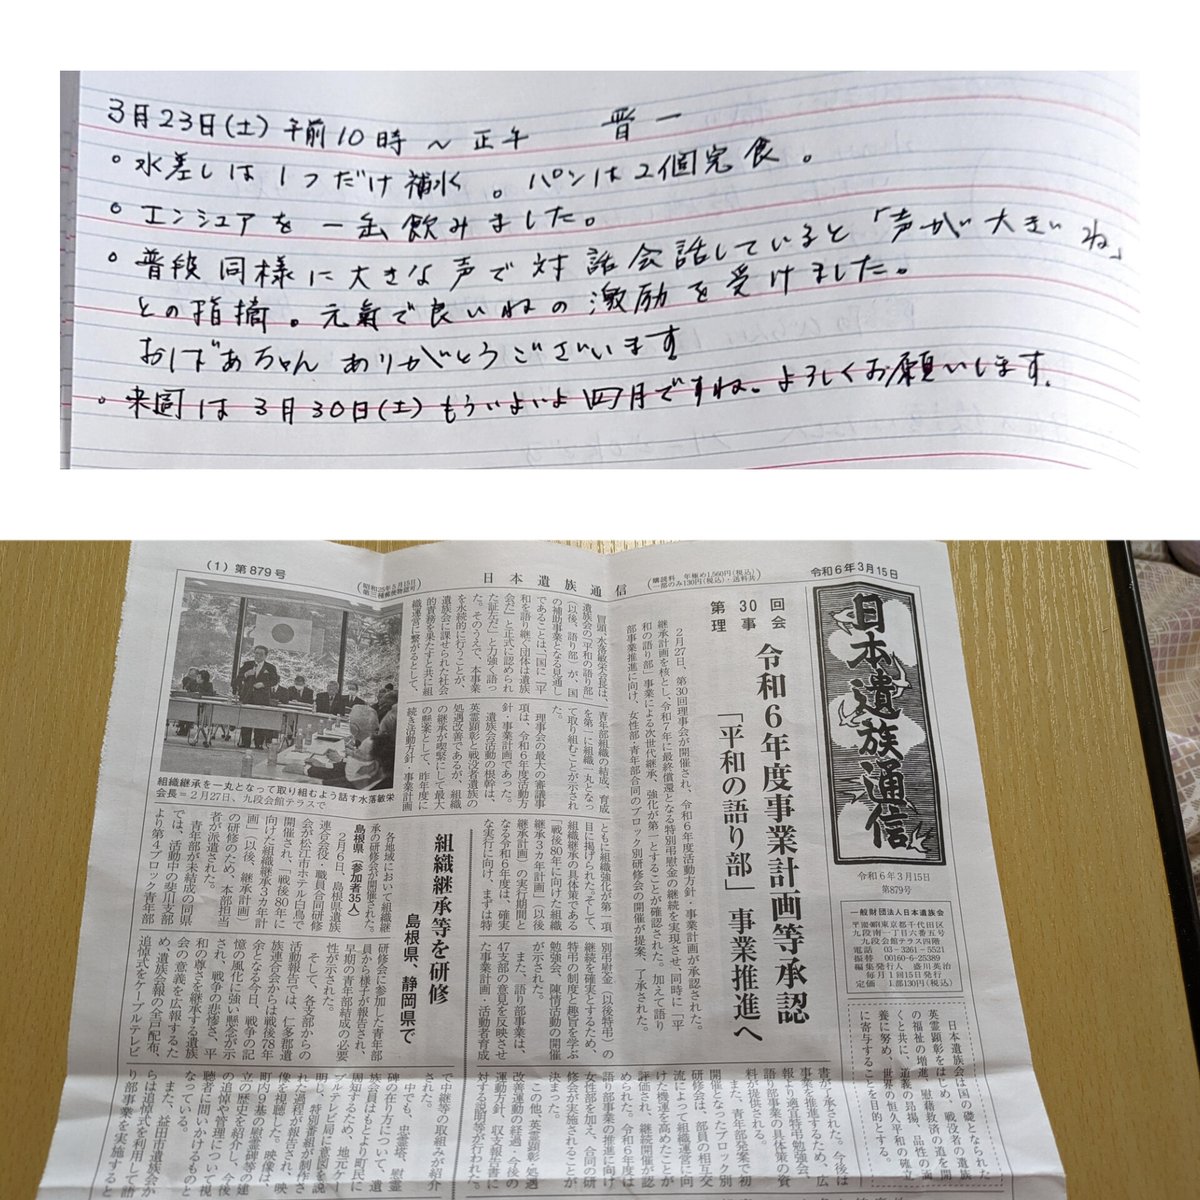 3月23日(土)午前10時～正午 晋一
。水差しは1つだけ補水。パンは2個完食。
。エンシュアを一缶飲みました。
。普段同様に大きな声で対話会話していると「声が大きいね」
との指摘。元氣で良いねの激励を受けました。
おばあちゃんありがとうございます
。来週は3月30日(土)もういよいよ四月ですね。よろしくお願いします.
(1)第879号
昭和25年5月15日
第三種郵便物認可
日本遺族通信
購読料 年極め1,560円(税込)
一部のみ130円(税込)・送料共
令和6年3月15日
日本遺族通信
令和6年3月15日
第879号
一般財団法人日本遺族会
東京都千代田区
九段南一丁目六番五号
九段会館テラス四階
電話 03-3261-5521
振替 00160-6-25389
編集発行人 盛川英治
毎月1回15日発行
定価 1部130円(税込)
日本遺族会は国の礎となられた
英霊顕彰をはじめ、戦没者の遺族
の福祉の増進、慰藉救済の道を開
くと共に、道義の昂揚、品性の涵
養に努め、世界の恒久平和の確立
に寄与することを目的とする。
第30回理事会
令和6年度事業計画等承認
「平和の語り部」事業推進へ
2月27日、第30回理事会が開催され、令和6年度活動方針・事業計画が承認された。
継承計画を核とし、令和7年に最終償還となる特別弔慰金の継続を実現させ、同時に「平
和の語り部」事業による次世代継承、強化が第一とすることが確認された。加えて語り
部事業推進に向け、女性部・青年部合同のブロック別研修会の開催が提案、了承された。
冒頭、水落敏栄会長は、
遺族会の「平和の語り部」
(以後、語り部)が、国
の補助事業となる見通し
であることは、「国に『平
和を語り継ぐ団体は遺族
会だ』と正式に認められ
た証左だ」と力強く語っ
た。そのうえで、本事業
を永続的に行うことが、
遺族会に課せられた社会
的責務を果たすと共に組
織運営に繋がるとして、
「青年部組織の結成、育成
を第一に組織一丸となっ
て取り組むことが示され
た。
理事会の最大の審議事
項は、令和6年度活動方
針・事業計画であった。
遺族会活動の根幹は、
英霊顕彰と戦没者遺族の
処遇改善であるが、組織
の継承が喫緊にして最大
の懸案として、昨年度に
続き活動方針、事業計画
ともに組織強化が第一項
目に掲げられた。そして、
組織継承の具体策である
「戦後80年に向けた組織
継承3カ年計画」(以後
継承計画)の実行期間と
なる令和6年度は、確実
な実行に向け、まずは特
別弔慰金(以後特弔)の
継続を確実とするため、
特弔の制度と趣旨を学ぶ
勉強会、陳情活動の開催
が示された。
また、語り部事業は、
47支部の意見を反映させ
た事業計画・活動者育成
書が了承された。今後は
事業を推進するため、広
報より適宜特弔勉強会、
語り部事業の具体策の資
料が提供される。
また、青年部発案で初
開催となったブロック別
研修会は、部員の相互交
流によって組織運営に向
けた機運を高めたことが
評価され、継続開催が認
められた。令和6年度は
語り部事業の推進に向け
女性部を加え、合同の研
修会が実施されることが
決まった。
この他、英霊顕彰、処遇
改善運動の経過・今後の
運動方針、収支報告書に
対する説明等が行われた。
組織継承を一丸となって取り組むよう話す水落敏栄
会長＝2月27日、九段会館テラスで
組織継承等を研修
島根県、静岡県で
各地域において組織継
承の研修会が開催された。
島根県(参加者35人)
2月6日、島根県遺族
連合会役・職員合同研修
会が松江市ホテル白鳥で
開催され、「戦後80年に
向けた組織継承3カ年計
画」(以後、継承計画)
の研修のため、本部担当
者が派遣された。
青年部が未結成の同県
では、活動中の斐川支部
より第4ブロック青年部
研修会に参加した青年部
員から様子が報告され、
早期の青年部結成の必要
性が示された。
そして、各支部からの
活動報告では、仁多郡遺
族連合会からは戦後78年
余となる今日、戦争の記
憶の風化に強い懸念が示
され、戦争の悲惨さ、平
和の尊さを継承する遺族
会の意義を広報するた
め、遺族会報の全戸配布、
追悼式をケーブルテレビ
で中継等の取組みが紹介
された。
中でも、忠霊塔、慰霊
碑の在り方について、遺
族会員はもとより町民に
周知するため、地元ケー
ブルテレビ局に意図を説
明し、特別番組が制作さ
れた過程が報告され、映
像を視聴した。映像は、
町内9基の慰霊碑等の建
立の歴史を紹介し、今後
の追悼や管理について視
聴者に問いかけるものと
なっている。
また、益田市遺族会か
らは追悼式を利用して語
り部事業を実施すると